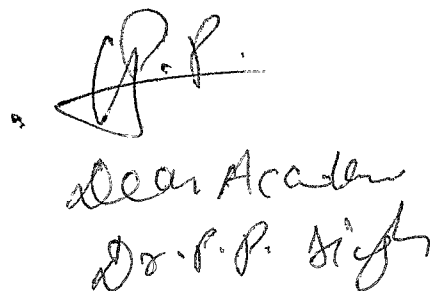 P.P.
Dean Academ
Dr. P. P. Singh